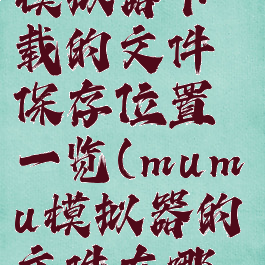 模拟器下
载的文件
保存位置
一览(mum
u模拟器的
文件在哪